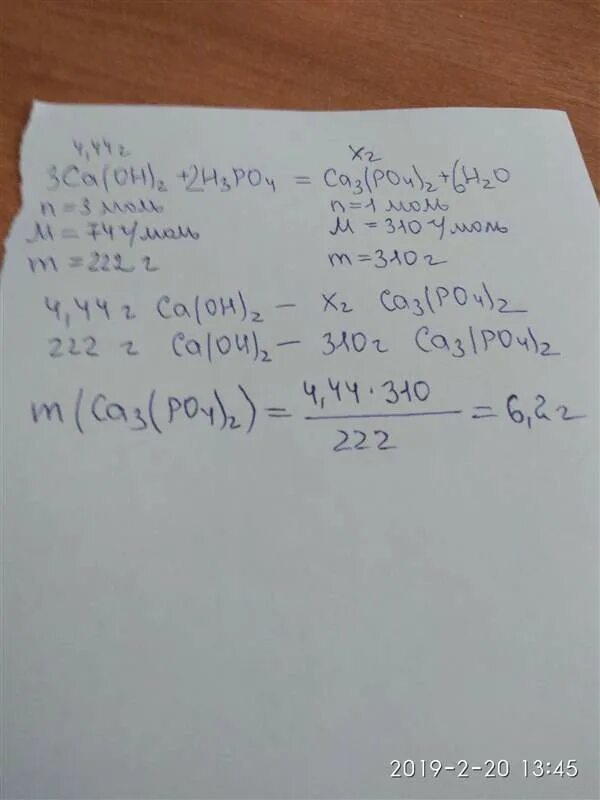 4,44 г
хг
3Ca(OH)₂ + 2H₃PO₄ = Ca₃(PO₄)₂ + 6H₂O
n = 3 моль n = 1 моль
M = 74 г/моль M = 310 г/моль
m = 222 г m = 310 г
4,44 г Ca(OH)₂ – хг Ca₃(PO₄)₂
222 г Ca(OH)₂ – 310 г Ca₃(PO₄)₂
m(Ca₃(PO₄)₂) = 4,44 · 310 / 222 = 6,2 г
2019-2-20 13:45